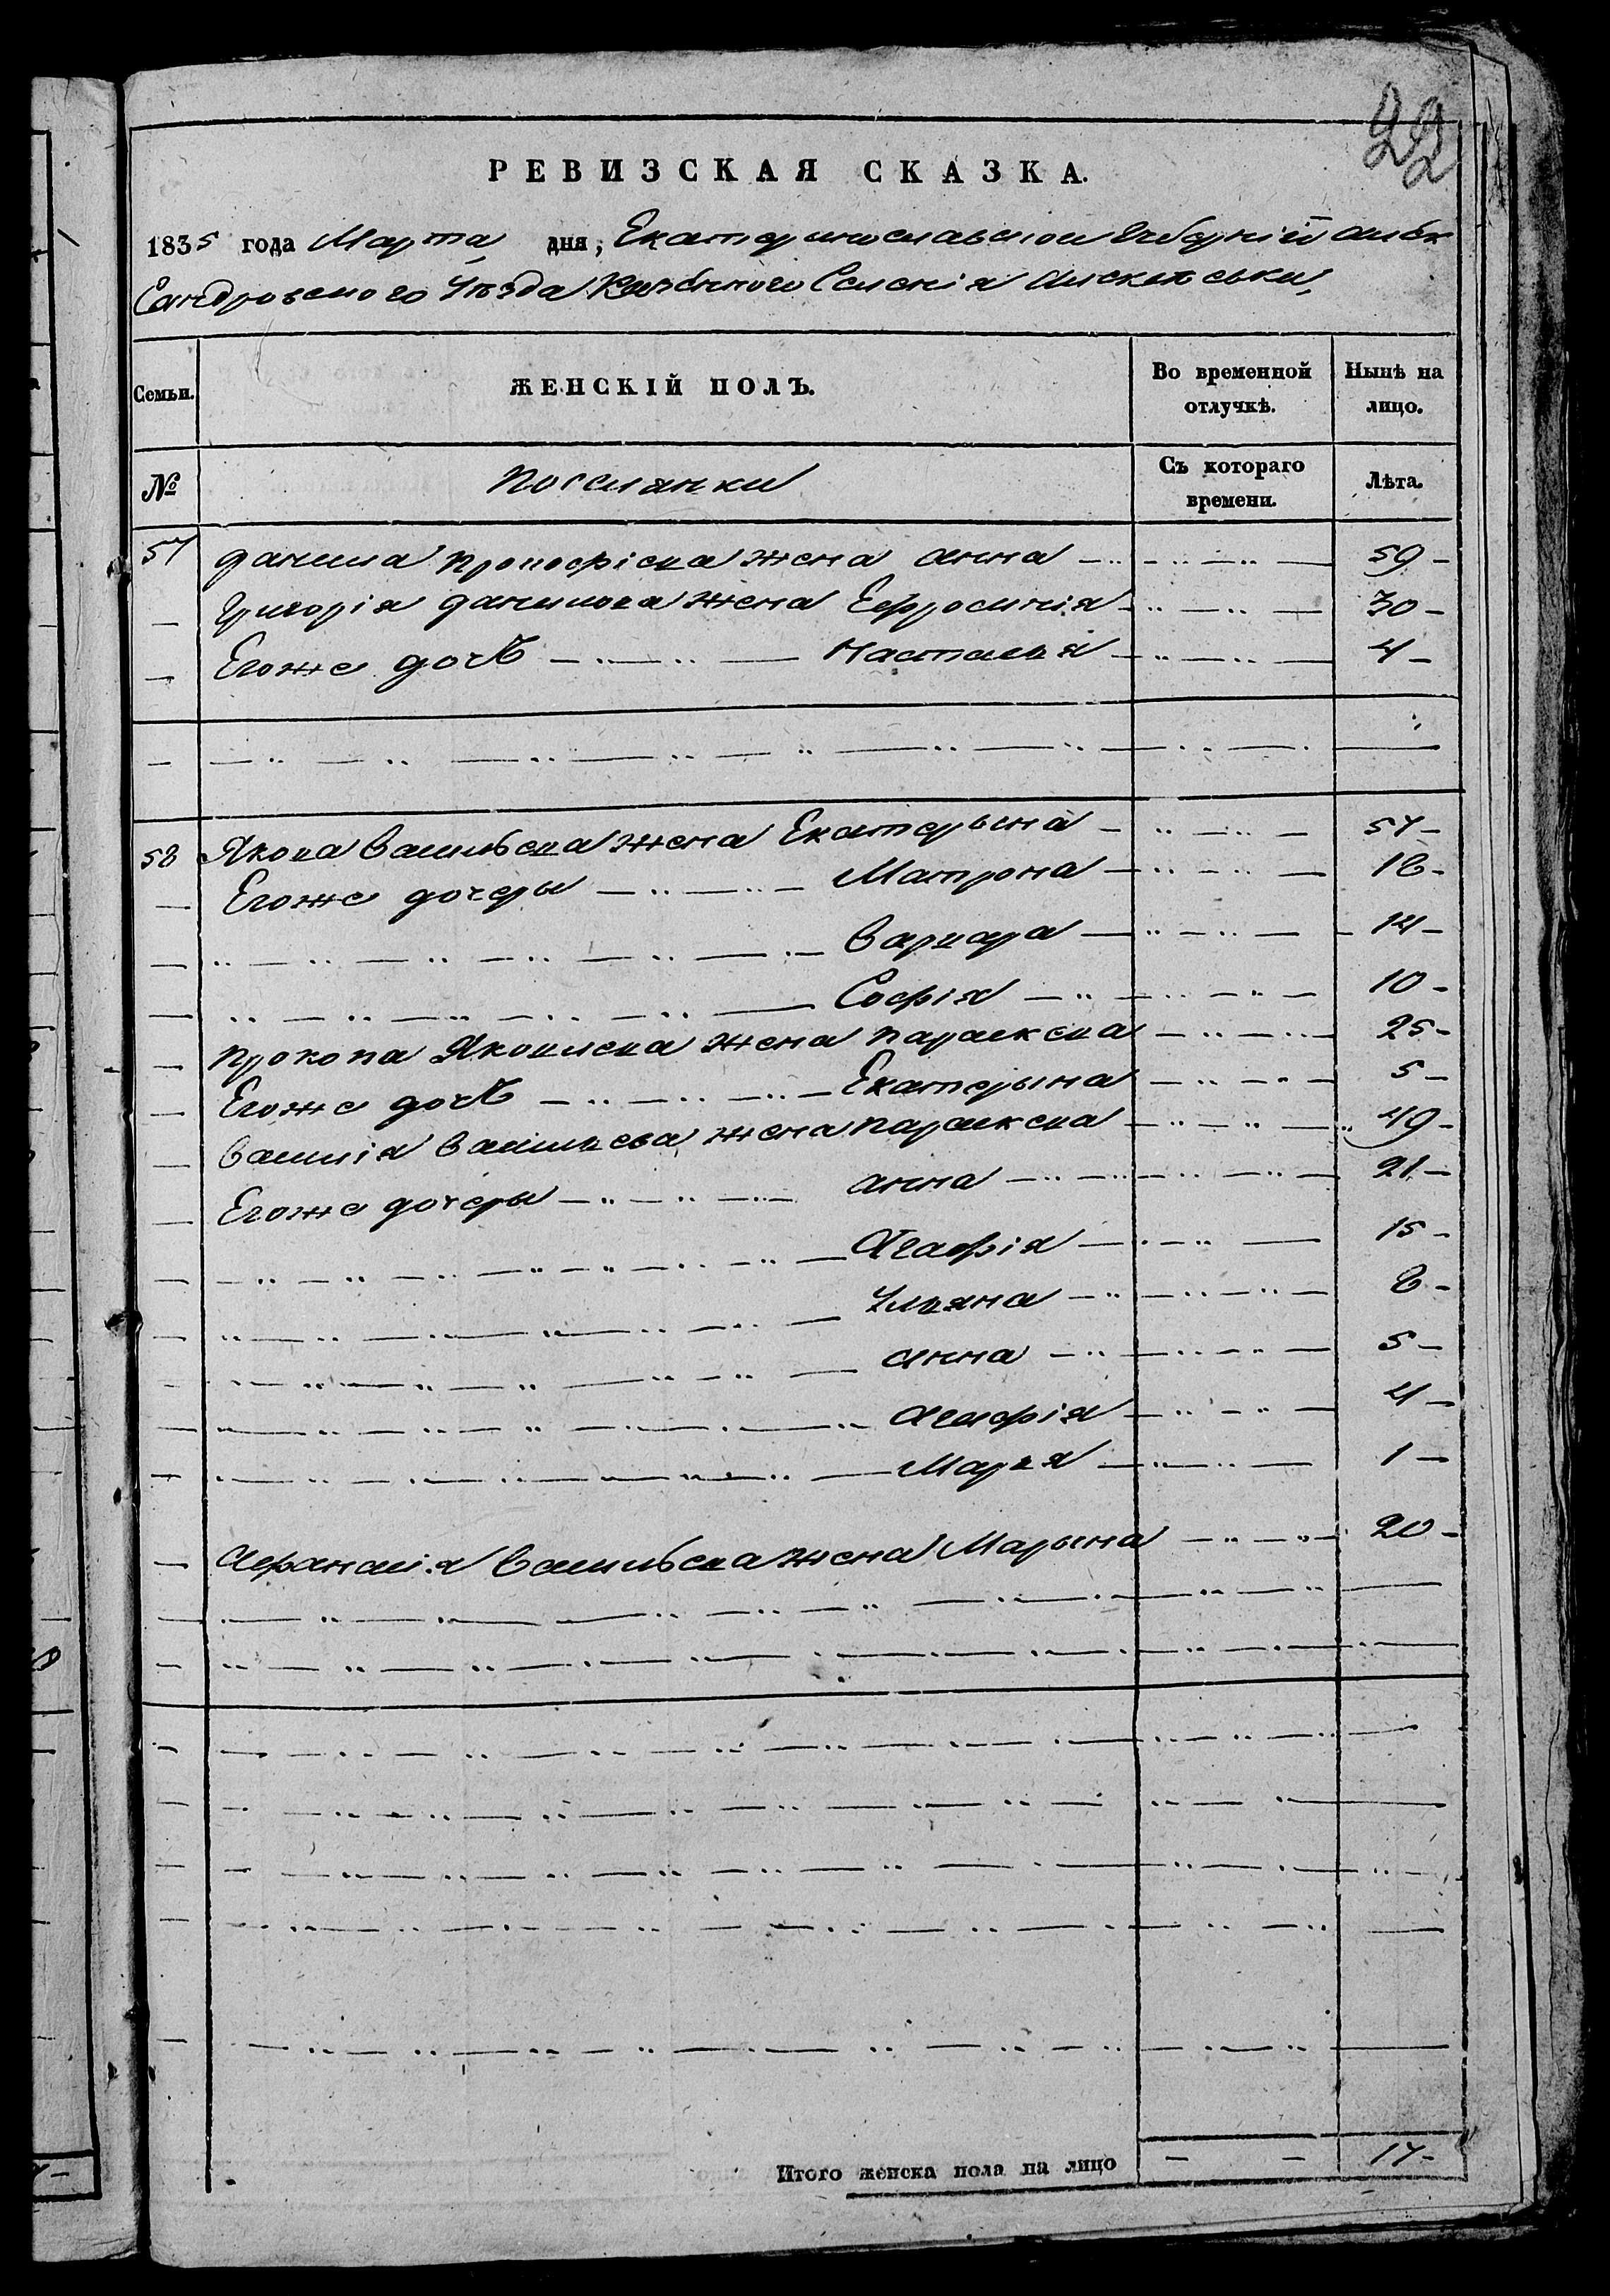 22
РЕВИЗСКАЯ СКАЗКА.
1835 года Марта дня, Екатеринославской Губерніи Алек
сандровского Уѣзда Казенного Селенія
Семьи. ЖЕНСКІЙ ПОЛЪ. Во временной отлучкѣ. Нынѣ на лицо.
№ Поселянки Съ котораго времени. Лѣта.
57 Данила Прокофіева жена Анна 59
Григорія Данилова жена Ефросинія 30
Егоже дочь Насталья 4
58 Якова Васильева жена Екатерына 57
Егоже дочеры Матрона 18
Варвара 14
Софія 10
Прокопа Яковлева жена Параксева 25
Егоже дочь Екатерына 5
Василія Васильева жена Параксева 49
Егоже дочеры Анна 21
Агафія 15
Ульяна 8
Анна 5
Агафія 4
Марья 1
Афанасія Васильева жена Марына 20
Итого женска пола на лицо 17